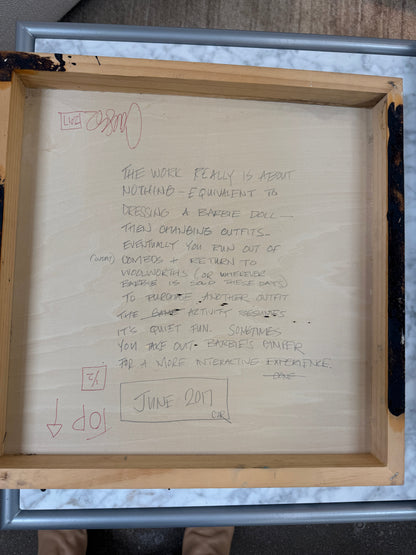 2017
THE WORK REALLY IS ABOUT
NOTHING – EQUIVALENT TO
DRESSING A BARBIE DOLL —
THEN CHANGING OUTFITS –
EVENTUALLY YOU RUN OUT OF
COMBOS + RETURN TO
WOOLWORTHS (OR WHEREVER
BARBIE IS SOLD THESE DAYS)
TO PURCHASE ANOTHER OUTFIT
THE GAME ACTIVITY RESUMES
IT'S QUIET FUN. SOMETIMES
YOU TAKE OUT BARBIE'S CAMPER
FOR A MORE INTERACTIVE EXPERIENCE.
1/2
TOP
JUNE 2017